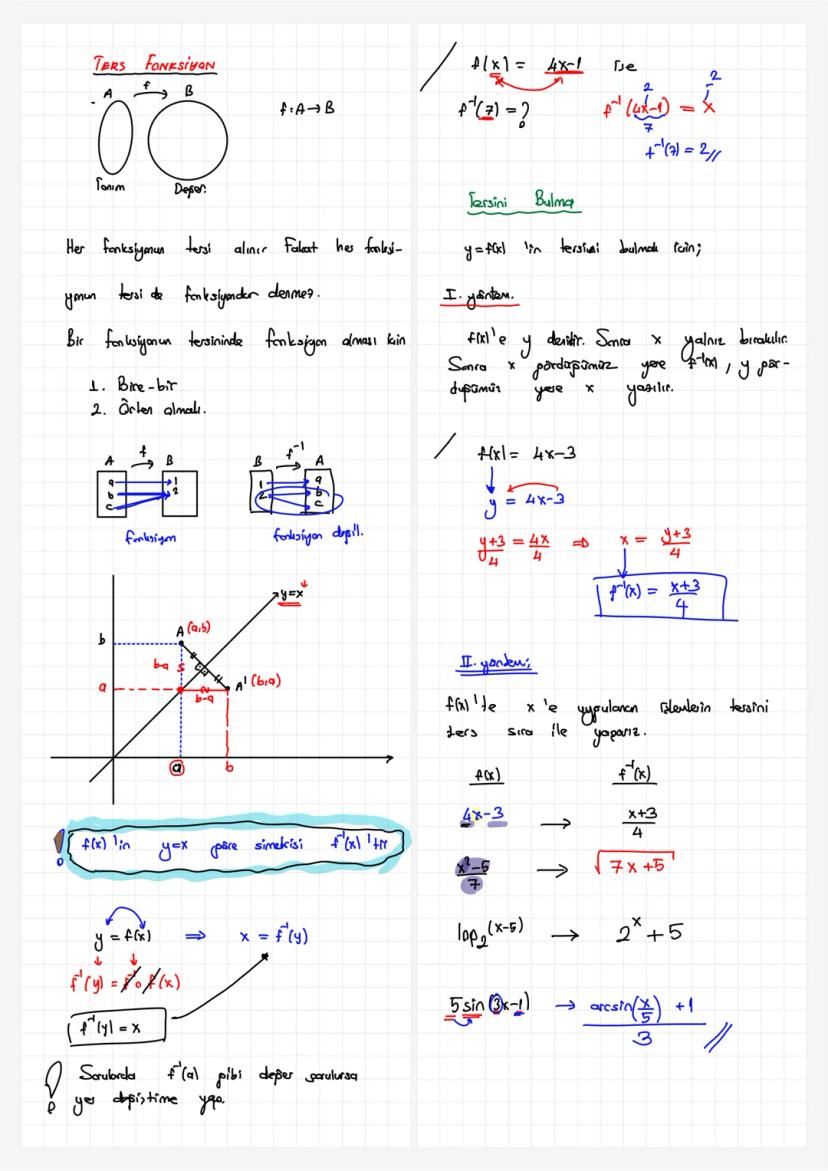 TERS FONKSİYON
A f B
f: A → B
Tanım Değer.
Her fonksiyonun tersi alınır Fakat her fonksi-
yonun tersi de fonksiyondur denmez.
Bir fonksiyonun tersininde fonksiyon olması için
1. Bire-bir
2. Örten olmalı.
A f B
a 1
b 2
c
fonksiyon
B f⁻¹ A
1 a
2 b
c
fonksiyon değil.
y=x
b A (a,b)
b-a
a A' (b,a)
b-a
a b
f(x)'in y=x göre simetrisi f⁻¹(x)'tir
y = f(x) ⇒ x = f⁻¹(y)
f⁻¹(y) = f⁻¹o f(x)
f⁻¹(y) = x
Sorularda f⁻¹(a) gibi değer sorulursa
yer değiştirme yap.
f(x) = 4x-1 ise
f⁻¹(7) = ?
2 2
f⁻¹(4x-1) = x
7
f⁻¹(7) = 2//
Tersini Bulma
y=f(x) 'in tersini bulmak için;
I. yöntem.
f(x)'e y denilir. Sonra x yalnız bırakılır.
Sonra x gördüğümüz yere f⁻¹(x), y gör-
düğümüz yere x yazılır.
f(x) = 4x-3
y = 4x-3
y+3/4 = 4x/4 ⇒ x = y+3/4
f⁻¹(x) = x+3/4
II. yöntem;
f(x)'te x'e uygulanan işlemlerin tersini
ters sıra ile yaparız.
f(x) f⁻¹(x)
4x-3 → x+3/4
x²-5/7 → √7x+5
log₂(x-5) → 2ˣ+5
5sin(3x-1) → arcsin(x/5) +1/3 //